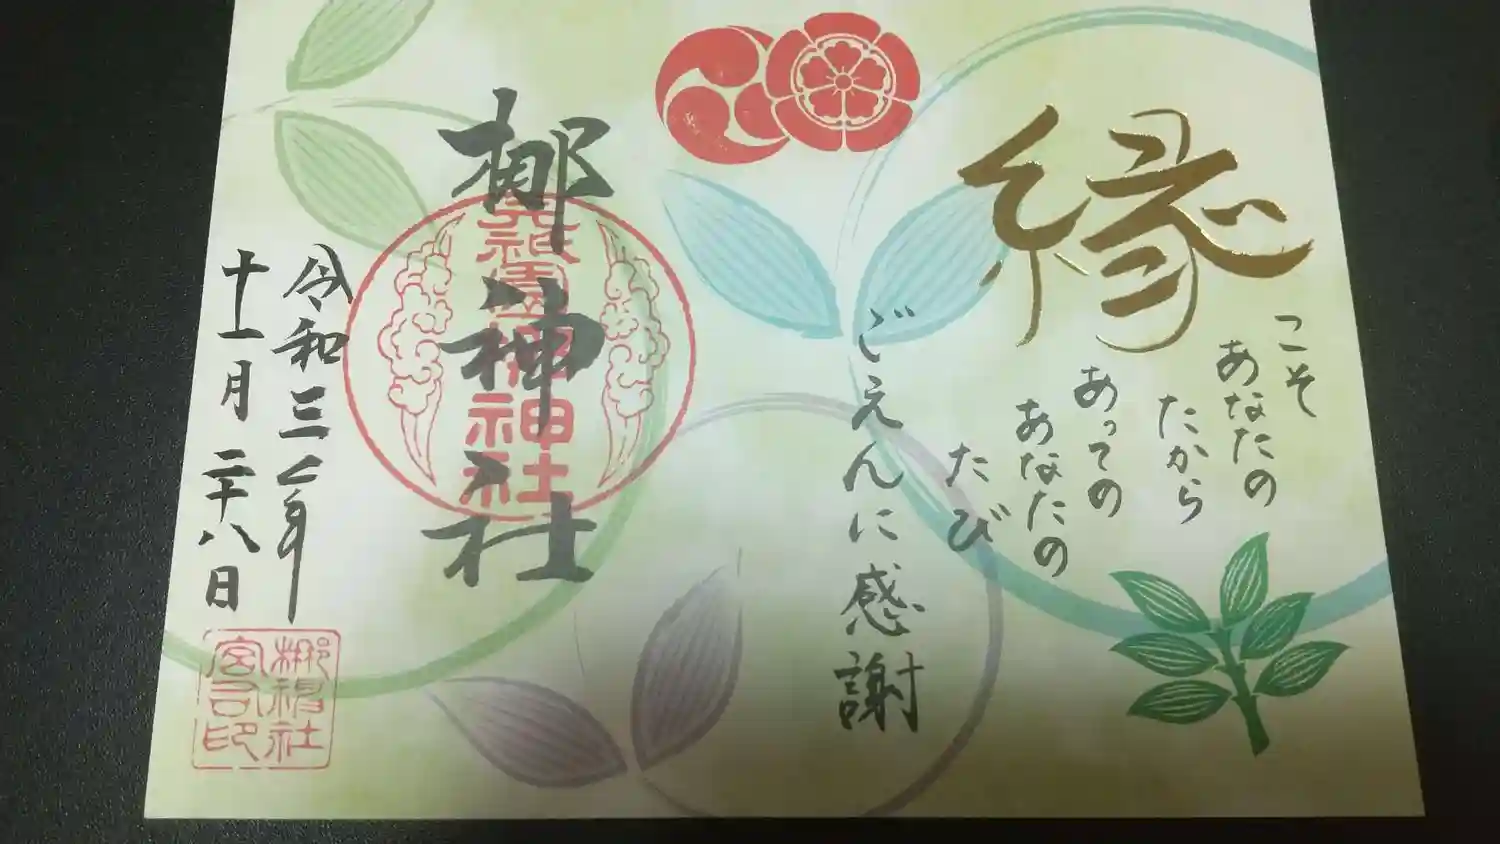 縁
こそ
あなたの
たから
あっての
あなたの
たび
ごえんに感謝
梛神社
元祇園梛神社
令和三年
十一月二十八日
梛神社
宮司印